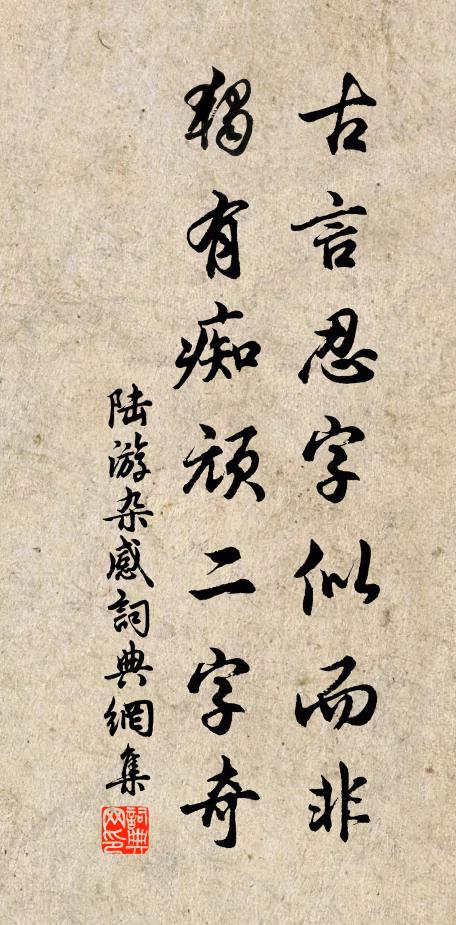 古言忍字似而非
獨有痴頑二字奇
陆游杂感詞典網集
詞典网印